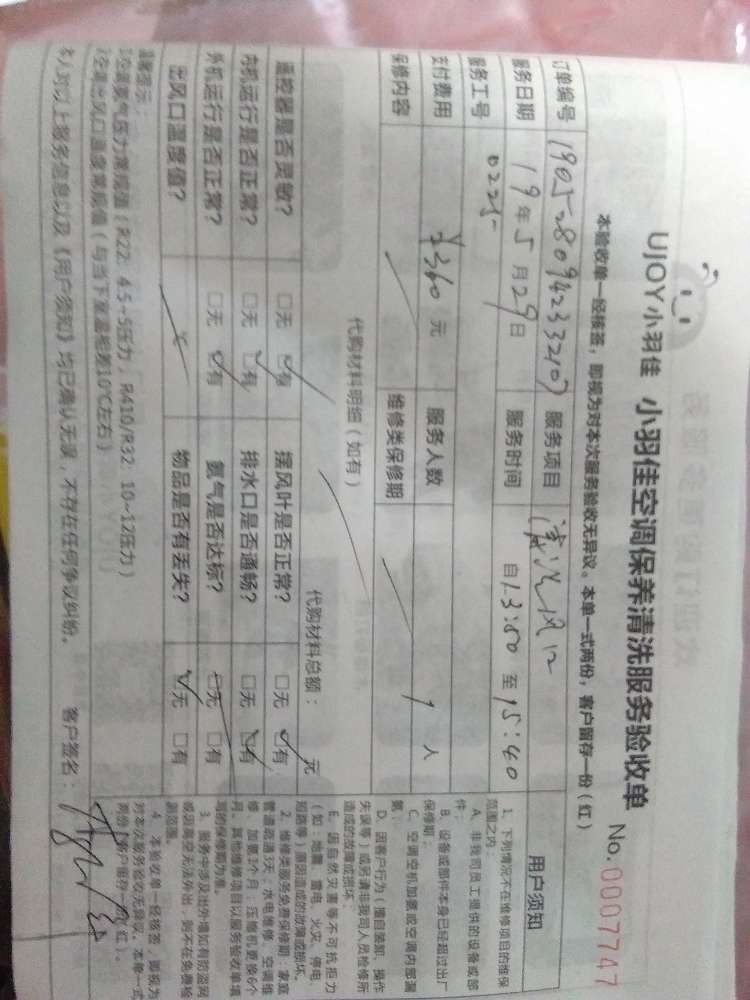 UJOY小羽佳 小羽佳空调保养清洗服务验收单 No.0007747
本验收单一经核签，即视为对本次服务验收无异议。本单一式两份，客户留存一份（红）
订单编号 服务项目 清洗风口
服务日期 19年5月29日 服务时间 自13:50至15:40
服务工号 02250
支付费用 ¥360元 服务人数 1人
保修内容 维修类保修期
代购材料明细（如有） 代购材料总额： 元
遥控器是否灵敏？ □无 □有 摆风叶是否正常？ □无 □有
内机运行是否正常？ □无 □有 排水口是否通畅？ □无 □有
外机运行是否正常？ □无 □有 氨气是否达标？ □无 □有
出风口温度值？ ℃ 物品是否有丢失？ □无 □有
温馨提示：
（R22：4.5~5压力，R410/R32 10~12压力）
（与当下室温相差10℃左右）
本人对以上服务信息以及《用户须知》均已确认无误，不存在任何争议纠纷。 客户签名：
用户须知
1、下列情况不在维修项目的维保
范围之内：
A、非我司员工提供的设备或部
件；
B、设备或部件本身已经超过出厂
保修期；
C、空调空机加氨或空调内部漏
氨；
D、因客户行为（擅自装卸、操作
失误等）或另请非我司人员检修所
造成的故障或损坏；
E、因自然灾害等不可抗拒力
（如：地震、雷电、火灾、停电、
短路等）原因造成的故障或损坏。
2、维修类服务免费保修期：家庭
管道疏通3天，水电维修、空调维
修、加氨1个月；压缩机更换6个
月。其他维修项目以服务验收单填
写的保修期为准。
3、服务中涉及出外墙如有防盗网
或因高空无法外出，则不在免费检
测范围。
4、本验收单一经核签，即视为
对本次服务验收无异议。本单一式
两份，客户留存一份（红）。